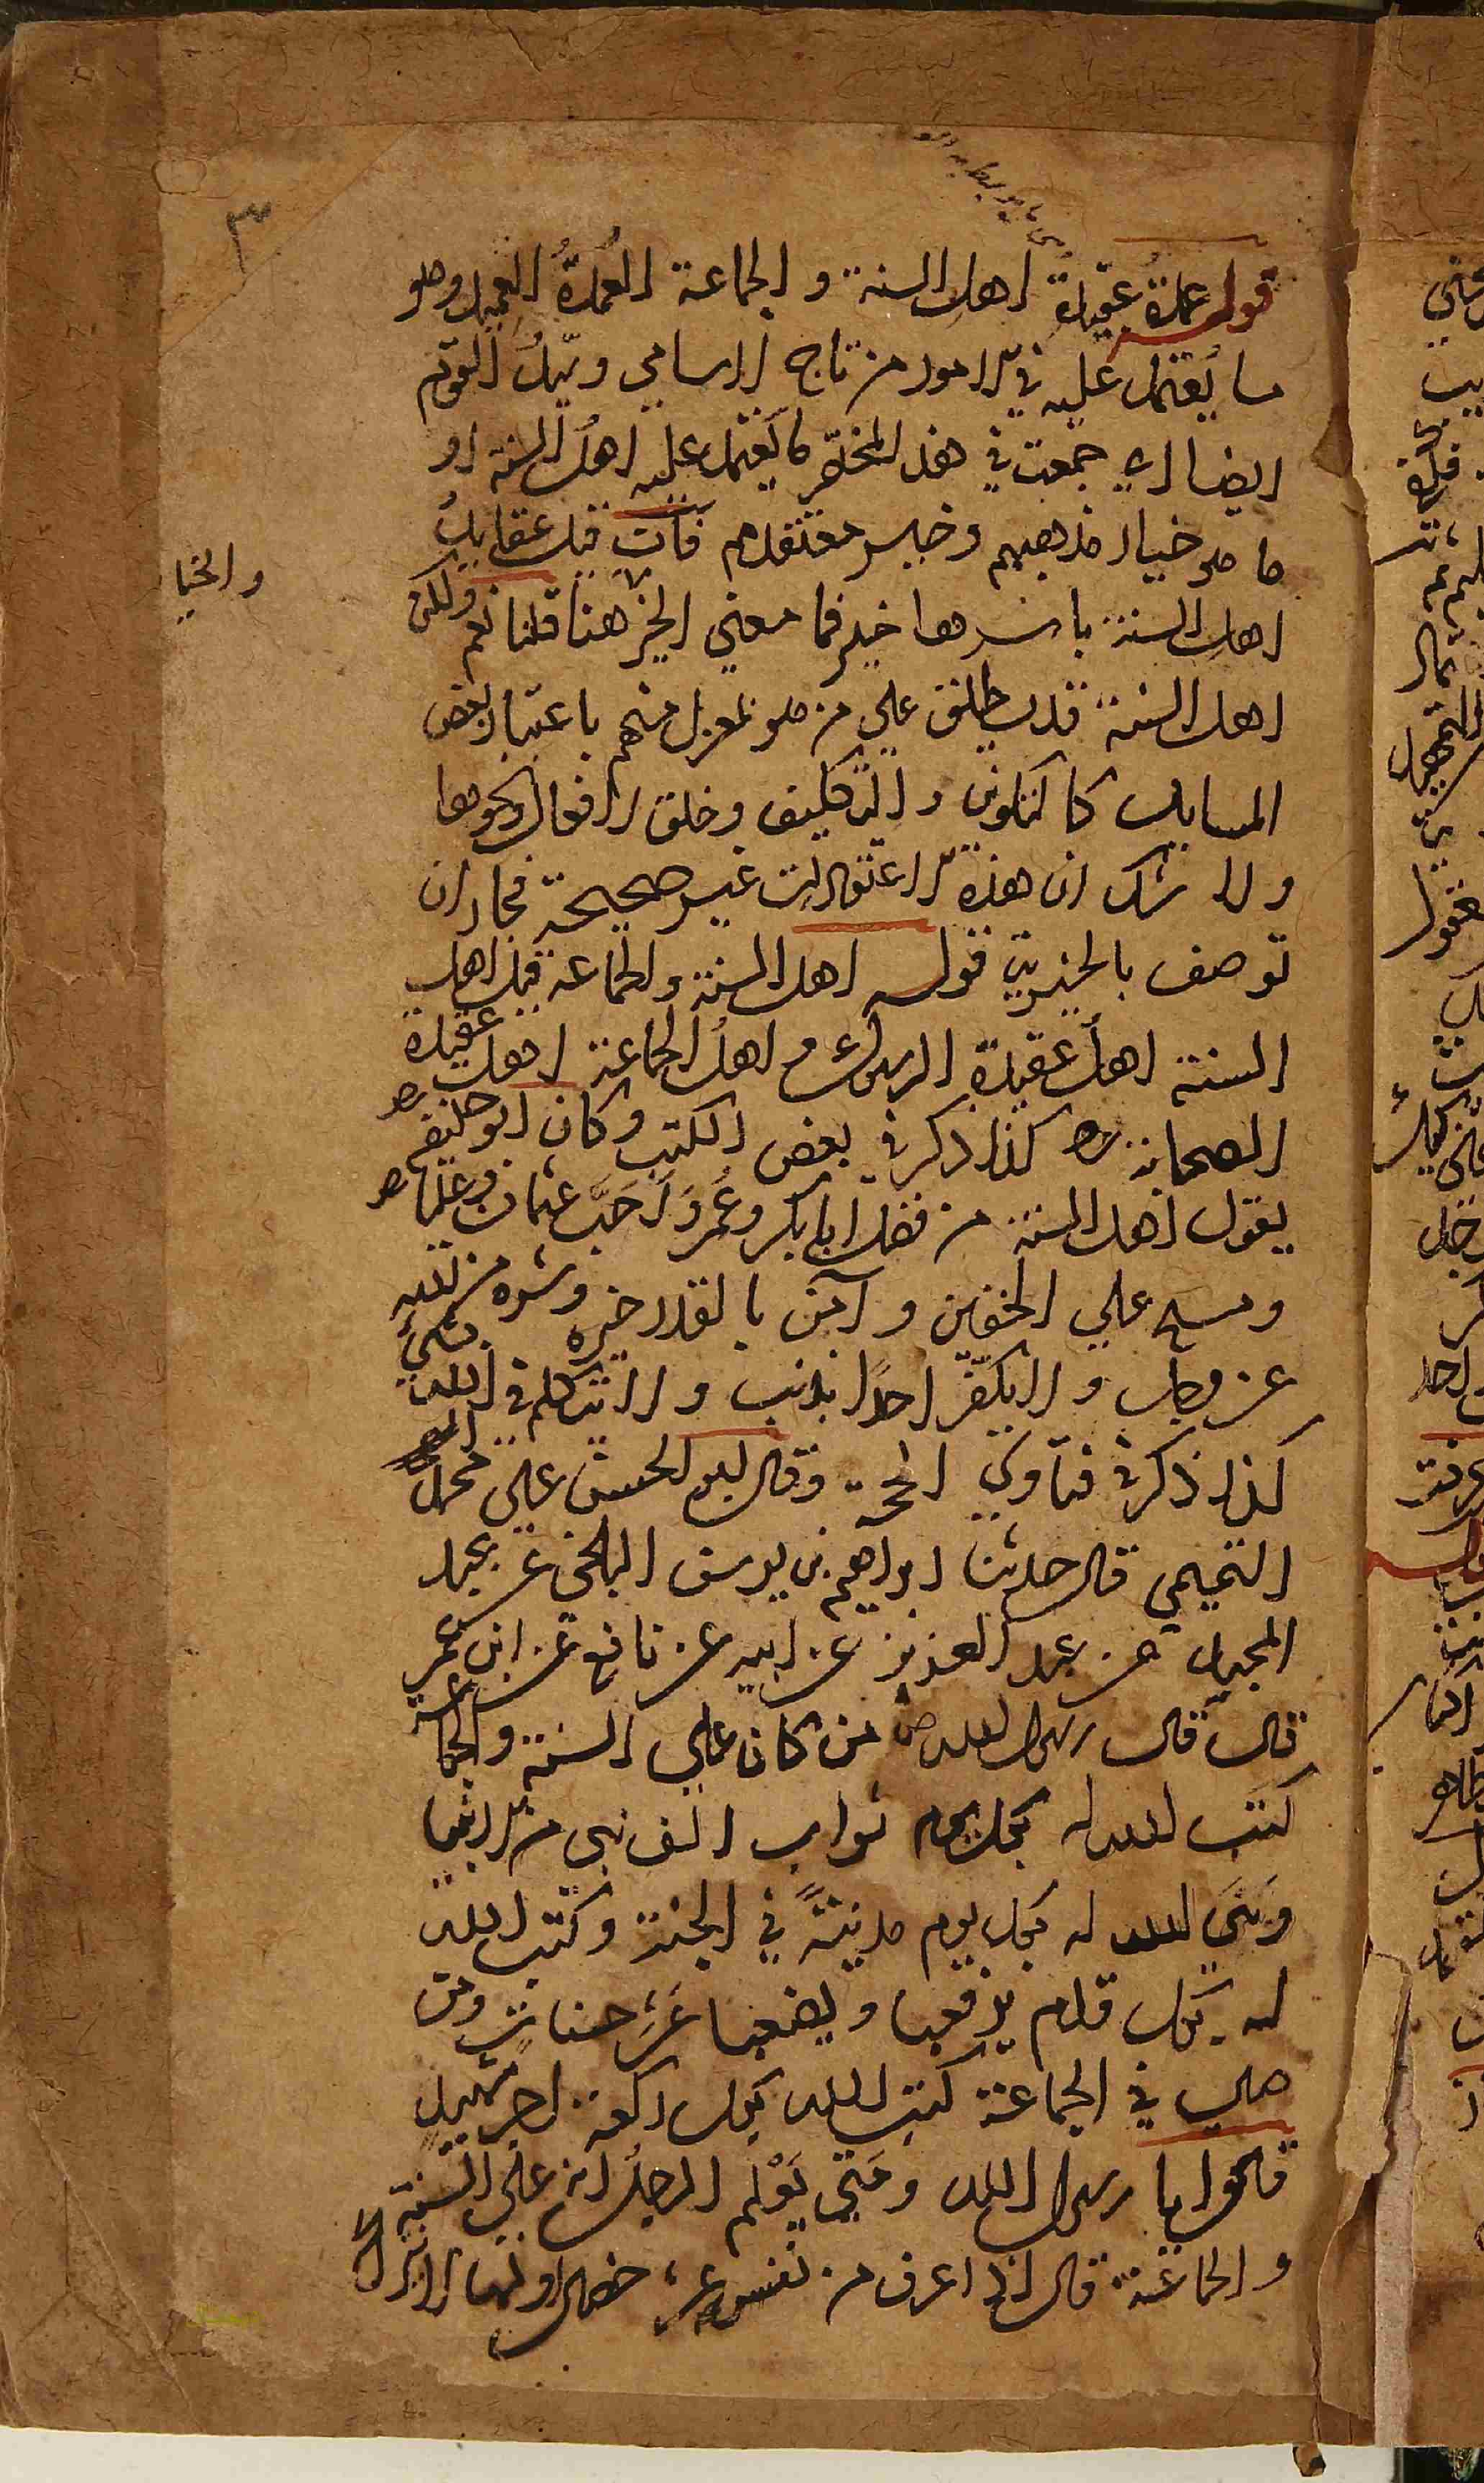 ٣
قوله عمدة عقيدة اهل السنة و الجماعة العُمدةُ العميد وهو
ما يُعتمد عليه في الامور من تاج الاسامي وسيّدُ القوم
ايضا اي جمعت في هذا المختصر ما يعتمد عليه اهل السنة او
ما هو خيار مذهبهم وخير معتقدهم فان قيل عقايدُ
والخيا
اهل السنة باسرها خير فما معني الخير هنا قلنا نعم ولكن
اهل السنة قد يطلق علي من هو بمعزل منهم باعتبار بعض
المسايل كالتكوين والتكليف وخلق الافعال ونحوها
ولا شك ان هذه الاعتقادات غير صحيحة فجاز ان
توصف بالخيرية قوله اهل السنة والجماعة قيل اهل
السنة اهل عقيدة الرسول ع م اهل الجماعة اهل عقيدة
الصحابة رض كذا ذكر في بعض الكتب وكان ابو حنيفة رض
يقول اهل السنة من فضل ابا بكر وعُمَرَ وَاَحَبَّ عثمان وعليا رض
ومسح علي الخفين و آمن بالقدر خيره وشره من الله
عز وجل ولا يكفّر احدًا بذنب ولا يتكلم في الله بشيء
كذا ذكر في فتاوي الحجة وقال ابو الحسن علي محمد
التميمي قال حدثنا ابراهيم بن يوسف البلخي عن عبد
المجيد عن عبد العزيز عن ابيه عن نافع عن ابن عمر
قال قال رسول الله ص من كان علي السنة والجماعة
كتب الله له بكل يوم ثواب الف نبي من الانبيا
وَبَنَي الله له بكل يوم مدينةً في الجنة وكتب الله
له بكل قدم يرفعها و يضعها عَشر حسنات ومن
صلي في الجماعة كتب الله بكل ركعة اجر شهيدٍ
قالوا يا رسول الله ومَتي يَعْلم الرجلُ انه علي السنة
والجماعة قال اذا عرف من نفسه عشر خصال اولها لا يترك